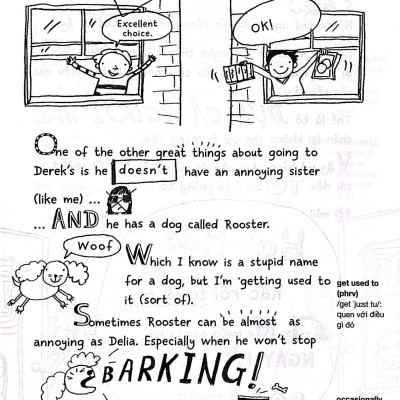 Excellent
choice.
OK!
One of the other great things about going to
Derek's is he doesn't have an annoying sister
(like me) ...
... AND he has a dog called Rooster.
Woof
Which I know is a stupid name
for a dog, but I'm getting used to
it (sort of).
get used to
(phrv)
/get ˈjuːst tu/:
quen với điều
gì đó
Sometimes Rooster can be almost as
annoying as Delia. Especially when he won't stop
BARKING!
occasionally